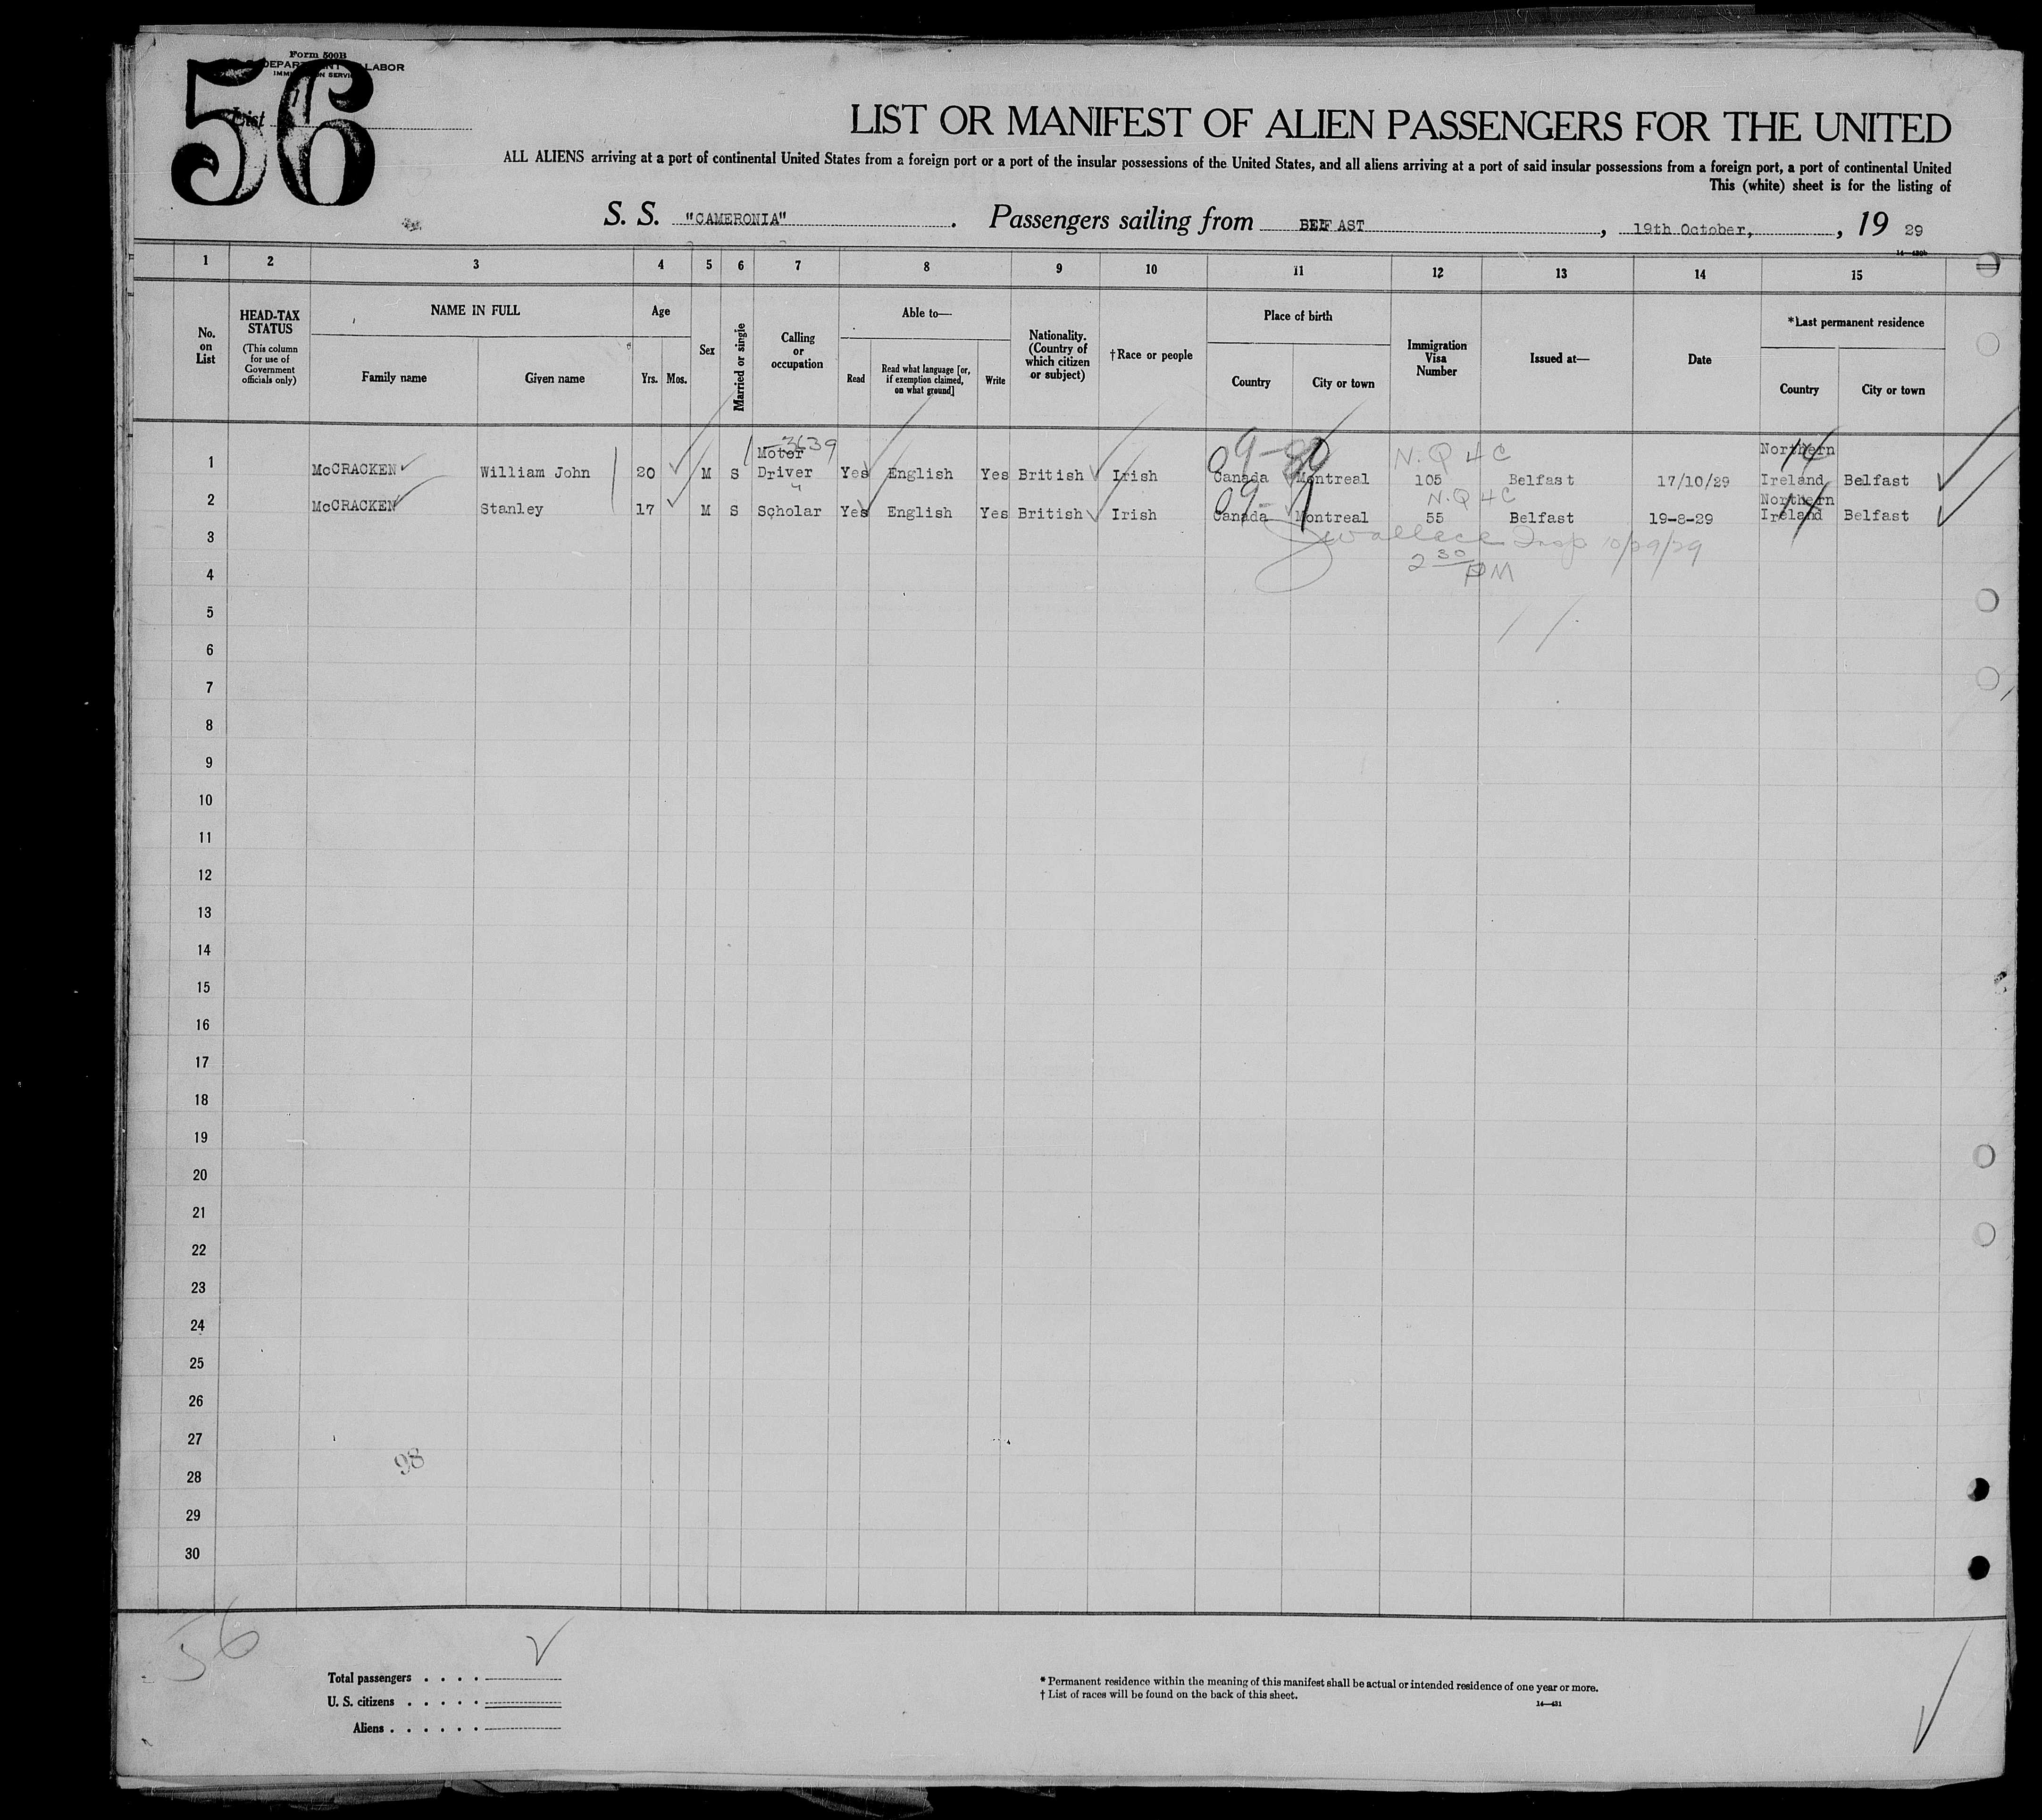 Form 500B
DEPARTMENT LABOR
IMMIGRATION SERVICE
56
List 1
LIST OR MANIFEST OF ALIEN PASSENGERS FOR THE UNITED
ALL ALIENS arriving at a port of continental United States from a foreign port or a port of the insular possessions of the United States, and all aliens arriving at a port of said insular possessions from a foreign port, a port of continental United
This (white) sheet is for the listing of
S. S. "CAMERONIA" . Passengers sailing from BELFAST , 19th October, , 19 29
14—430b
1 2 3 4 5 6 7 8 9 10 11 12 13 14 15
No. on List
HEAD-TAX STATUS (This column for use of Government officials only)
NAME IN FULL
Family name Given name
Age
Yrs. Mos.
Sex
Married or single
Calling or occupation
Able to—
Read Read what language [or, if exemption claimed, on what ground] Write
Nationality. (Country of which citizen or subject)
†Race or people
Place of birth
Country City or town
Immigration Visa Number
Issued at—
Date
*Last permanent residence
Country City or town
3639 09- N.Q 4C 14
Motor Northern
1 McCRACKEN William John 20 M S Driver Yes English Yes British Irish Canada Montreal 105 Belfast 17/10/29 Ireland Belfast
09- N.Q 4C Northern
2 McCRACKEN Stanley 17 M S Scholar Yes English Yes British Irish Canada Montreal 55 Belfast 19-8-29 Ireland Belfast
3 Wallace Insp 10/29/29
4 2 30 PM
5
6
7
8
9
10
11
12
13
14
15
16
17
18
19
20
21
22
23
24
25
26
27
98
28
29
30
56
Total passengers . . . .
U. S. citizens . . . . .
Aliens . . . . . .
* Permanent residence within the meaning of this manifest shall be actual or intended residence of one year or more.
† List of races will be found on the back of this sheet.
14—431